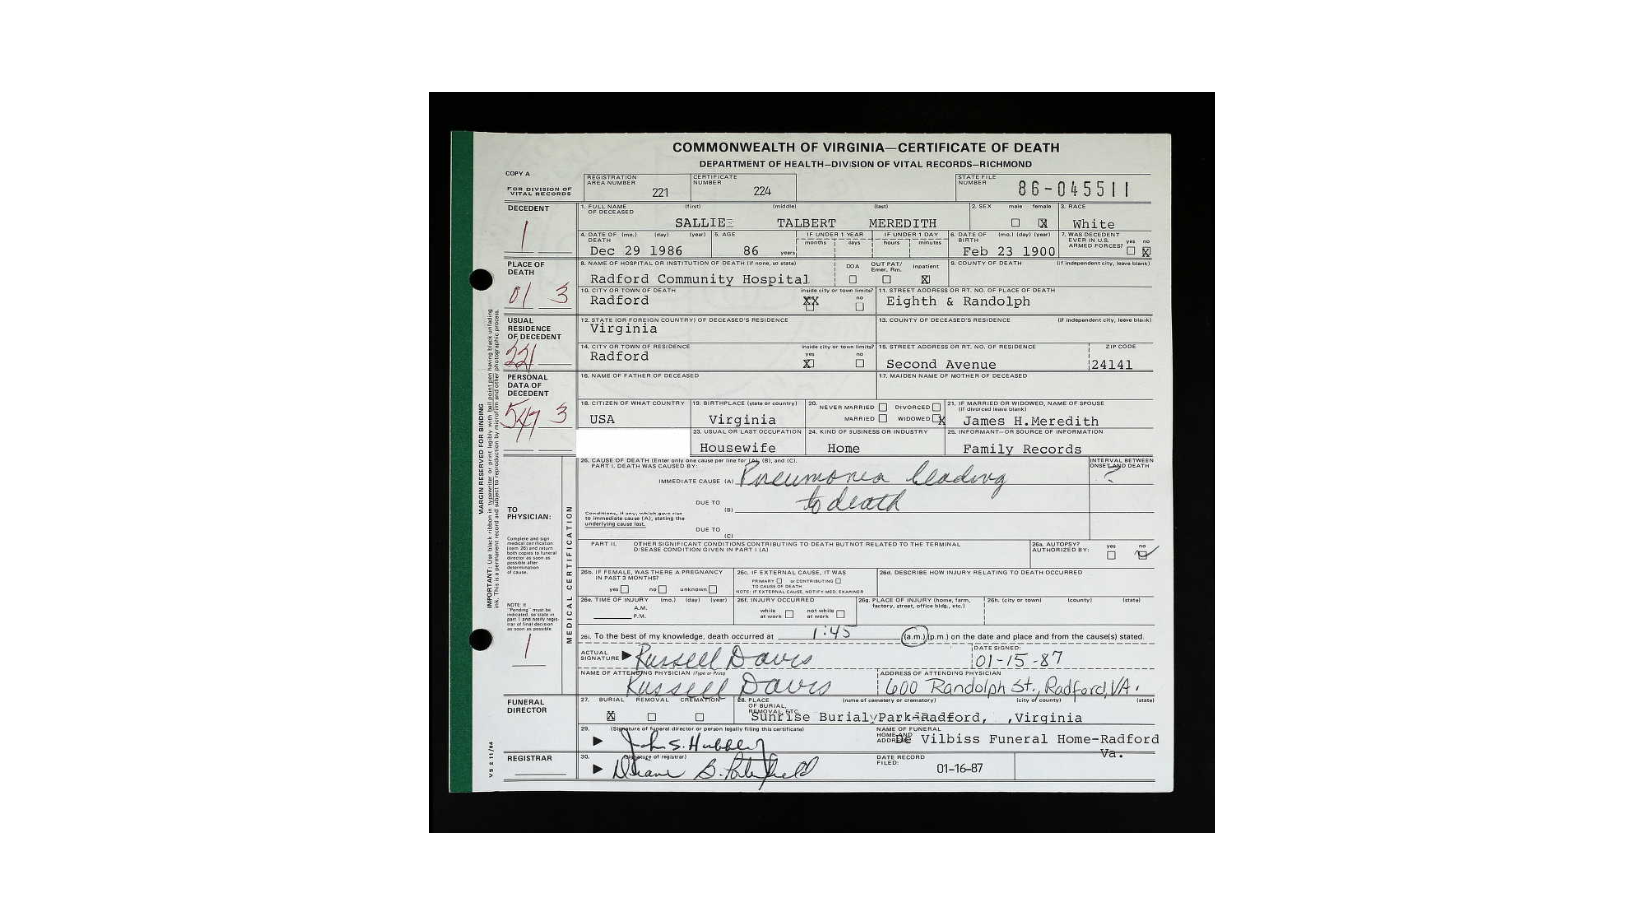 COMMONWEALTH OF VIRGINIA—CERTIFICATE OF DEATH
DEPARTMENT OF HEALTH—DIVISION OF VITAL RECORDS—RICHMOND
COPY A
FOR DIVISION OF VITAL RECORDS
REGISTRATION AREA NUMBER 221
CERTIFICATE NUMBER 224
STATE FILE NUMBER 86-045511
DECEDENT
1
1. FULL NAME OF DECEASED (first) (middle) (last)
SALLIE TALBERT MEREDITH
2. SEX male female X
3. RACE White
4. DATE OF DEATH (mo.) (day) (year) Dec 29 1986
5. AGE 86 years
IF UNDER 1 YEAR months days
IF UNDER 1 DAY hours minutes
6. DATE OF BIRTH (mo.) (day) (year) Feb 23 1900
7. WAS DECEDENT EVER IN U.S. ARMED FORCES? yes no X
PLACE OF DEATH
01 3
8. NAME OF HOSPITAL OR INSTITUTION OF DEATH (if none, so state)
Radford Community Hospital
DOA OUT PAT/ Emer. Rm. Inpatient X
9. COUNTY OF DEATH (if independent city, leave blank)
10. CITY OR TOWN OF DEATH Radford
inside city or town limits? XX no
11. STREET ADDRESS OR RT. NO. OF PLACE OF DEATH
Eighth & Randolph
USUAL RESIDENCE OF DECEDENT
221
12. STATE (OR FOREIGN COUNTRY) OF DECEASED'S RESIDENCE
Virginia
13. COUNTY OF DECEASED'S RESIDENCE (if independent city, leave blank)
14. CITY OR TOWN OF RESIDENCE Radford
inside city or town limits? yes X no
15. STREET ADDRESS OR RT. NO. OF RESIDENCE ZIP CODE
Second Avenue 24141
PERSONAL DATA OF DECEDENT
547 3
16. NAME OF FATHER OF DECEASED
17. MAIDEN NAME OF MOTHER OF DECEASED
18. CITIZEN OF WHAT COUNTRY USA
19. BIRTHPLACE (state or country) Virginia
20. NEVER MARRIED DIVORCED
MARRIED WIDOWED X
21. IF MARRIED OR WIDOWED, NAME OF SPOUSE (if divorced leave blank)
James H.Meredith
23. USUAL OR LAST OCCUPATION Housewife
24. KIND OF BUSINESS OR INDUSTRY Home
25. INFORMANT—OR SOURCE OF INFORMATION Family Records
MARGIN RESERVED FOR BINDING
TO PHYSICIAN:
Complete and sign medical certification (item 26) and return both copies to funeral director as soon as possible after determination of cause.
1
MEDICAL CERTIFICATION
26. CAUSE OF DEATH (Enter only one cause per line for (A), (B), and (C).
PART I. DEATH WAS CAUSED BY:
INTERVAL BETWEEN ONSET AND DEATH
IMMEDIATE CAUSE (A) Pneumonia leading ?
DUE TO (B) to death
Conditions, if any, which gave rise to immediate cause (A), stating the underlying cause last.
DUE TO (C)
PART II. OTHER SIGNIFICANT CONDITIONS CONTRIBUTING TO DEATH BUT NOT RELATED TO THE TERMINAL DISEASE CONDITION GIVEN IN PART I (A)
26a. AUTOPSY? AUTHORIZED BY: yes no
26b. IF FEMALE, WAS THERE A PREGNANCY IN PAST 3 MONTHS?
yes no unknown
26c. IF EXTERNAL CAUSE, IT WAS
PRIMARY or CONTRIBUTING TO CAUSE OF DEATH
NOTE: IF EXTERNAL CAUSE, NOTIFY MED. EXAMINER
26d. DESCRIBE HOW INJURY RELATING TO DEATH OCCURRED
26e. TIME OF INJURY (mo.) (day) (year)
A.M.
P.M.
26f. INJURY OCCURRED
while at work not while at work
26g. PLACE OF INJURY (home, farm, factory, street, office bldg., etc.)
26h. (city or town) (county) (state)
26i. To the best of my knowledge, death occurred at 1:45 (a.m.) (p.m.) on the date and place and from the cause(s) stated.
ACTUAL SIGNATURE Russell Davis
DATE SIGNED: 01-15-87
NAME OF ATTENDING PHYSICIAN (Type or Print) Russell Davis
ADDRESS OF ATTENDING PHYSICIAN 600 Randolph St., Radford, VA.
FUNERAL DIRECTOR
27. BURIAL X REMOVAL CREMATION
28. PLACE OF BURIAL, REMOVAL, ETC. (name of cemetery or crematory) (city or county) (state)
Sunrise Burial Park-Radford, ,Virginia
29. (Signature of funeral director or person legally filing this certificate)
John S. Hubble
NAME OF FUNERAL HOME AND ADDRESS
De Vilbiss Funeral Home-Radford
Va.
REGISTRAR
30. (Signature of registrar)
DATE RECORD FILED: 01-16-87
VS 2 11/84